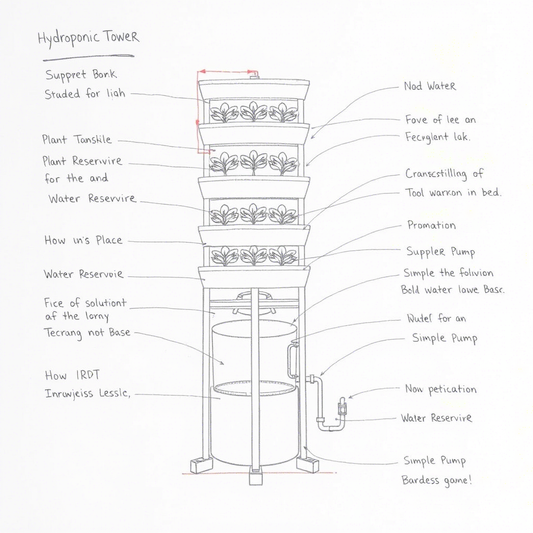 Hydroponic Tower
Suppret Bonk
Studed for liah
Plant Tanslile
Plant Reservire
for the and
Water Reservire
How un's Place
Water Reservoie
Fice of solutiont
af the lorny
Tecrang not Base
How IRDT
Inrowjeiss Lesslc,
Nod Water
Fove of lee an
Fecrglant lak.
Cranscstilling of
Tool warkon in bed.
Promation
Suppler Pump
Simple the folvion
Bold water lowe Basc.
Nudef for an
Simple Pump
Now petication
Water Reservire
Simple Pump
Bardess game!